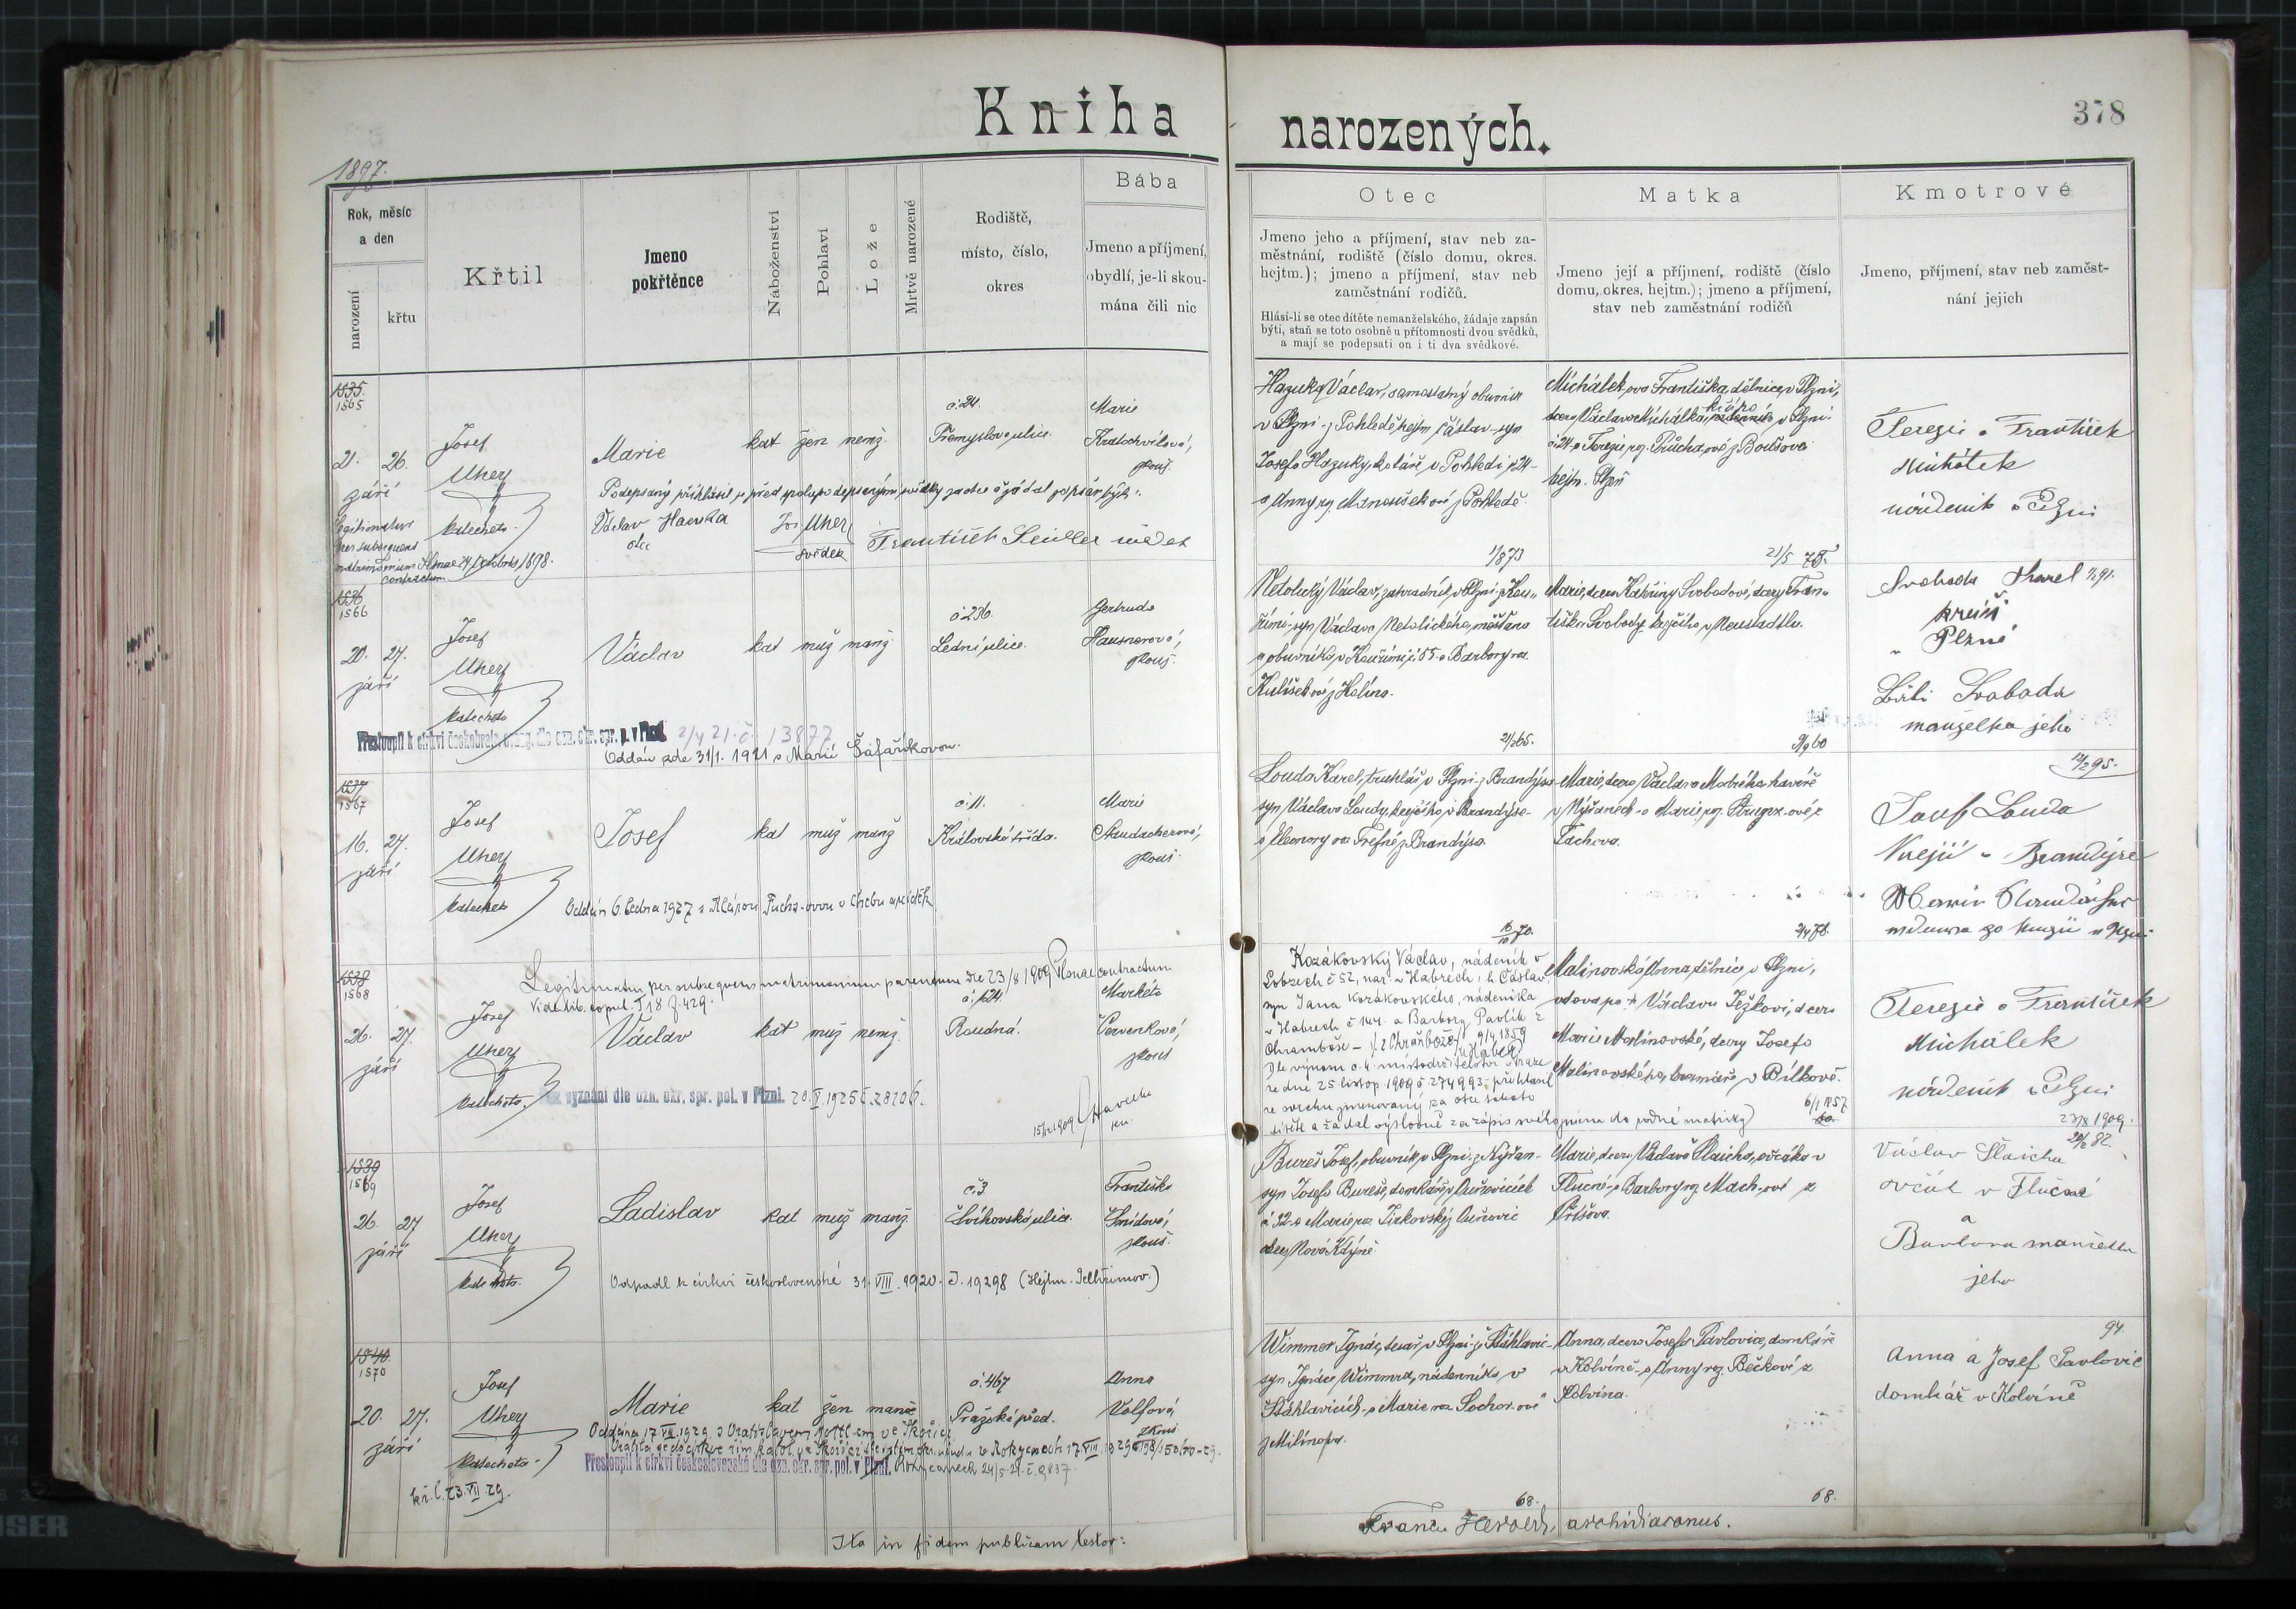 Kniha narozených.
378
1897.
Rok, měsíc
a den
narození
křtu
Křtil
Jmeno
pokřtěnce
Náboženství
Pohlaví
Lože
Mrtvě narozené
Rodiště,
místo, číslo,
okres
Bába
Jmeno a příjmení,
obydlí, je-li skou-
mána čili nic
Otec
Jmeno jeho a příjmení, stav neb za-
městnání, rodiště (číslo domu, okres.
hejtm.); jmeno a příjmení, stav neb
zaměstnání rodičů.
Hlásí-li se otec dítěte nemanželského, žádaje zapsán
býti, staň se toto osobně u přítomnosti dvou svědků,
a mají se podepsati on i ti dva svědkové.
Matka
Jmeno její a příjmení, rodiště (číslo
domu, okres. hejtm.); jmeno a příjmení,
stav neb zaměstnání rodičů
Kmotrové
Jmeno, příjmení, stav neb zaměst-
nání jejich
1535
1565
21. 26.
září
Josef
Uher
katecheta
Marie
kat žen nemž.
č. 24.
Přemyslova ulice.
Marie
Kratochvílová,
zkouš.
Podepsaný přihlásil se před spolupodepsanými svědky za otce a žádal zapsán býti:
Václav Hazuka
otec
Jos. Uher
svědek
František svědek
Legitimatus
per subsequens
matrimonium Plznae 24 Octobris 1898.
contractum
Hazuka Václav, samostatný obuvník
v Plzni z Pohledě hejtm. Čáslav syn
Josefa Hazuky, koláře v Pohledi č 24
a Anny roz. Manoušek ové z Pohledě.
1/8 73
Michálek ova Františka, dělnice v Plzni,
dcera Václava Michálka, v Plzni
č 24 a Terezie roz. Průcha ové z
hejtm. Plzeň
21/5 78.
Terezie a František
Michálek
nádeník v Plzni
1536
1566
20. 27.
září
Josef
Uher
katecheta
Václav
kat muž manž.
č 236.
Lední ulice.
Gertruda
Hausnerová,
zkouš.
Přestoupil k církvi českobratr. evang. dle ozn. okr. spr. p. v Plzni 2/4 21. č. 13877
Oddán zde 31/1. 1921 s Marií Šafaříkovou.
Netolický Václav, zahradník v Plzni z Kou-
řími, syn Václava Netolického, měšťana
a obuvníka v Kouřimi č 55 a Barbory roz.
Kulíšek ové z Kolína.
21/2 65.
Marie, dcera Kateřiny Svobodové, dcery Fran-
tiška Svobody, krejčího v Neustadtlu.
9/9 60
Svoboda Karel
krejčí
v Plzně
Svoboda
manželka jeho
1537
1567
16. 27.
září
Josef
Uher
katecheta
Josef
kat muž manž
č. 11.
Královská třída.
Marie
Staudacherová,
zkouš.
Oddán 6. ledna 1927 s Fuchs-ovou v Chebu
Louda Karel, truhlář v Plzni z Brandýsa
syn Václava Loudy, krejčího v Brandýse
a Eleonory roz. Trefné z Brandýsa.
16/10 70.
Marie, dcera Václava havíře
v Nýřanech a Marie roz. ové z
Tachova.
12/2 95.
Josef Louda
Krejčí v Brandýse
1538
1568
26. 27.
září
Josef
Uher
katecheta
Legitimatus per subsequens matrimonium parentum die 23/8 1909 Plznae contractum
Vide lib. copul. T 18 f. 429.
Václav
kat muž nemž.
č. 124.
Roudná.
Markéta
Červenková,
zkouš
vyznání dle ozn. okr. spr. pol. v Plzni. 20. V. 1925 č. 28206.
15/12 1909
Kozákovský Václav, nádeník v
Lobzech č 52, nar. v Habrech, h. Čáslav,
syn Jana Kozákovského, nádeníka
v Habrech č 144. a Barbory Pavlík z
Dle výnosu c. k. místodržitelství v Praze
ze dne 25 listop. 1909 č 274993, přihlásil
se svrchu jmenovaný za otce tohoto
dítěte a žádal výslovně za zápis svého jména do rodné matriky
Malinovská Anna, dělnice v Plzni,
vdova po † Václavu Ježkovi, dcera
Marie Malinovské, dcery Josefa
Malinovského, v Bílkově.
6/1 1857
Terezie a František
Michálek
nádeník v Plzni
23/8 1909.
1539
1569
26. 27
září
Josef
Uher
katecheta.
Ladislav
kat muž manž.
č. 3
Švihovská ulice.
Františka
Šmídová,
zkouš.
Odpadl k církvi československé 31. VIII. 1920. č. 19298 (Hejtm. Pelhřimov.)
Bureš Josef, obuvník v Plzni z Kyšan-
syn Josefa Bureše, domkáře v
č 32 a Marie roz. Jirkovský z
okres Nová Kdyně
Marie, dcera Václava Šlaicha, ovčáka v
Tlucné a Barbory roz. Mach ové z
20/2 82.
Václav Šlaicha
ovčák v Tlučné
a
Barbora manželka
jeho
1540.
1570
20. 27.
září
Josef
Uher
katecheta
Marie
kat žen manž
č. 467
Pražské před.
Anna
Volfová,
zkouš.
Oddána 17. VIII. 1929. s Vratislavem Nottl em ve Skořici
Přestoupil k církvi československé dle ozn. okr. spr. pol. v Plzni. Rokycanech 24/5. 21. č. 9837.
kř. l. 23. VII. 29.
Wimmer Ignác, tesař v Plzni ze Šťáhlavic
syn Ignáce Wimmra, nádenníka v
Šťáhlavicích a Marie roz. Sochor-ové
z Milínova.
68.
Anna, dcera Josefa Pavlovice, domkáře
v Kolvíně a Anny roz. Bečkové z
Kolvína.
68.
94.
Anna a Josef Pavlovic
domkář v Kolvíně
Ita in fidem publicam testor:
archidiaconus.